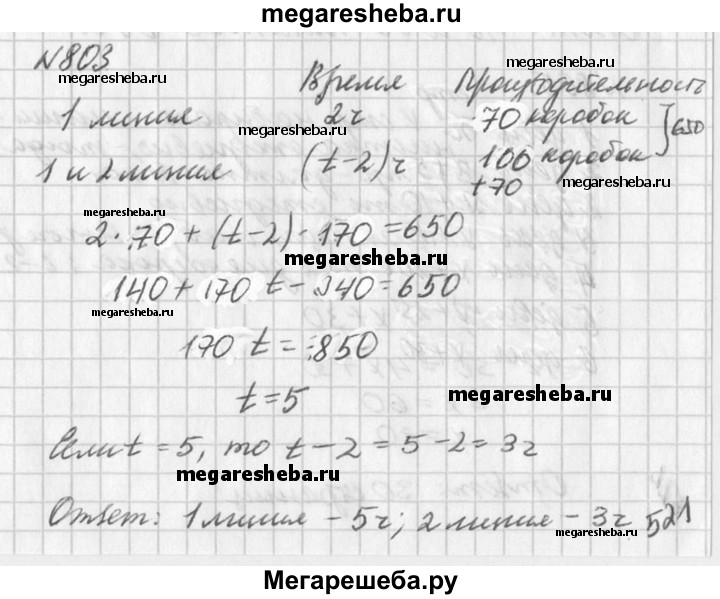 megaresheba.ru
N803
megaresheba.ru
Время Производительность
megaresheba.ru
1 линия 2ч 70 коробок ] 650
megaresheba.ru
1 и 2 линия (t-2) ч 100 коробок
+70 megaresheba.ru
megaresheba.ru
2·70 + (t-2)·170=650
megaresheba.ru
140+170 t - 340=650
megaresheba.ru
170 t = 850
t=5
megaresheba.ru
Если t = 5, то t - 2 = 5-2 = 3ч
megaresheba.ru
Ответ: 1 линия - 5ч; 2 линия - 3ч 521
megaresheba.ru
Мегарешеба.ру